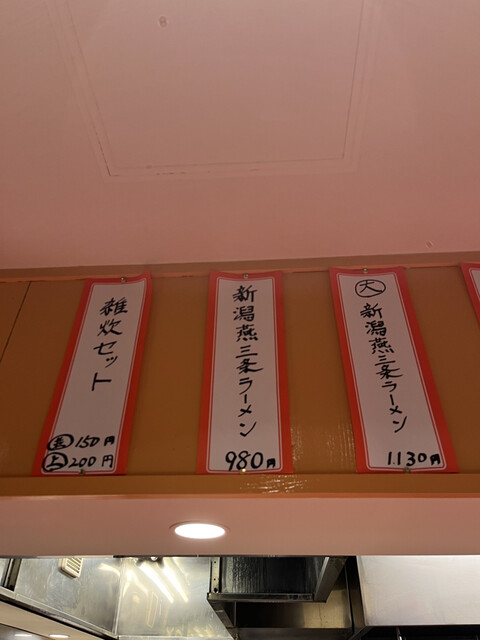 大
新潟燕三条ラーメン
1.130円
新潟燕三条ラーメン
980円
雑炊セット
150円
上 200円